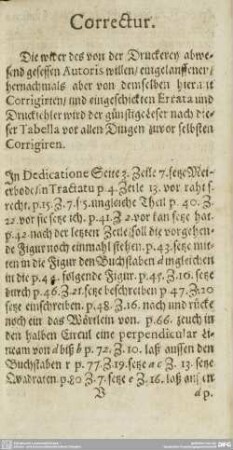 Correctur.
Die wider des von der Druckerey abwe-
send gesessen Autoris willen / eingelauffener /
hernachmals aber von demselben hiermit
Corrigirten / und eingeschickten Errata und
Druckfehler wird der günstige Leser nach die-
ser Tabella vor allen Dingen zuvor selbsten
Corrigiren.
In Dedicatione Seite 3. Zeile 7. setze Me-
thode / in Tractatu p 4. Zeile 13. vor raht s.
recht, p. 15. Z. 7. f 5. ungleiche Theil p. 40. Z.
22. vor sie setze ich. p. 41. Z 2. vor san setze hat.
p. 42. nach der letzten Zeile soll die vorgehen-
de Figur noch einmahl stehen. p. 43. setze mit-
ten in die Figur den Buchstaben d ingleichen
in die p. 44. folgende Figur. p. 45. Z. 16. setze
durch p. 46. Z. 21. setze beschreiben p 47. Z. 20
setze einschreiben. p. 48. Z. 16. nach und rücke
noch ein das Wörtlein von. p. 66. zeuch in
den halben Circul eine perpendicular Li-
neam von d biß b p. 72. Z. 10. laß aussen den
Buchstaben r p. 77. Z. 19. setze a c Z. 13. setze
Quadraten p. 80 Z. 7. setze e Z. 16. laß aussen
V d p.